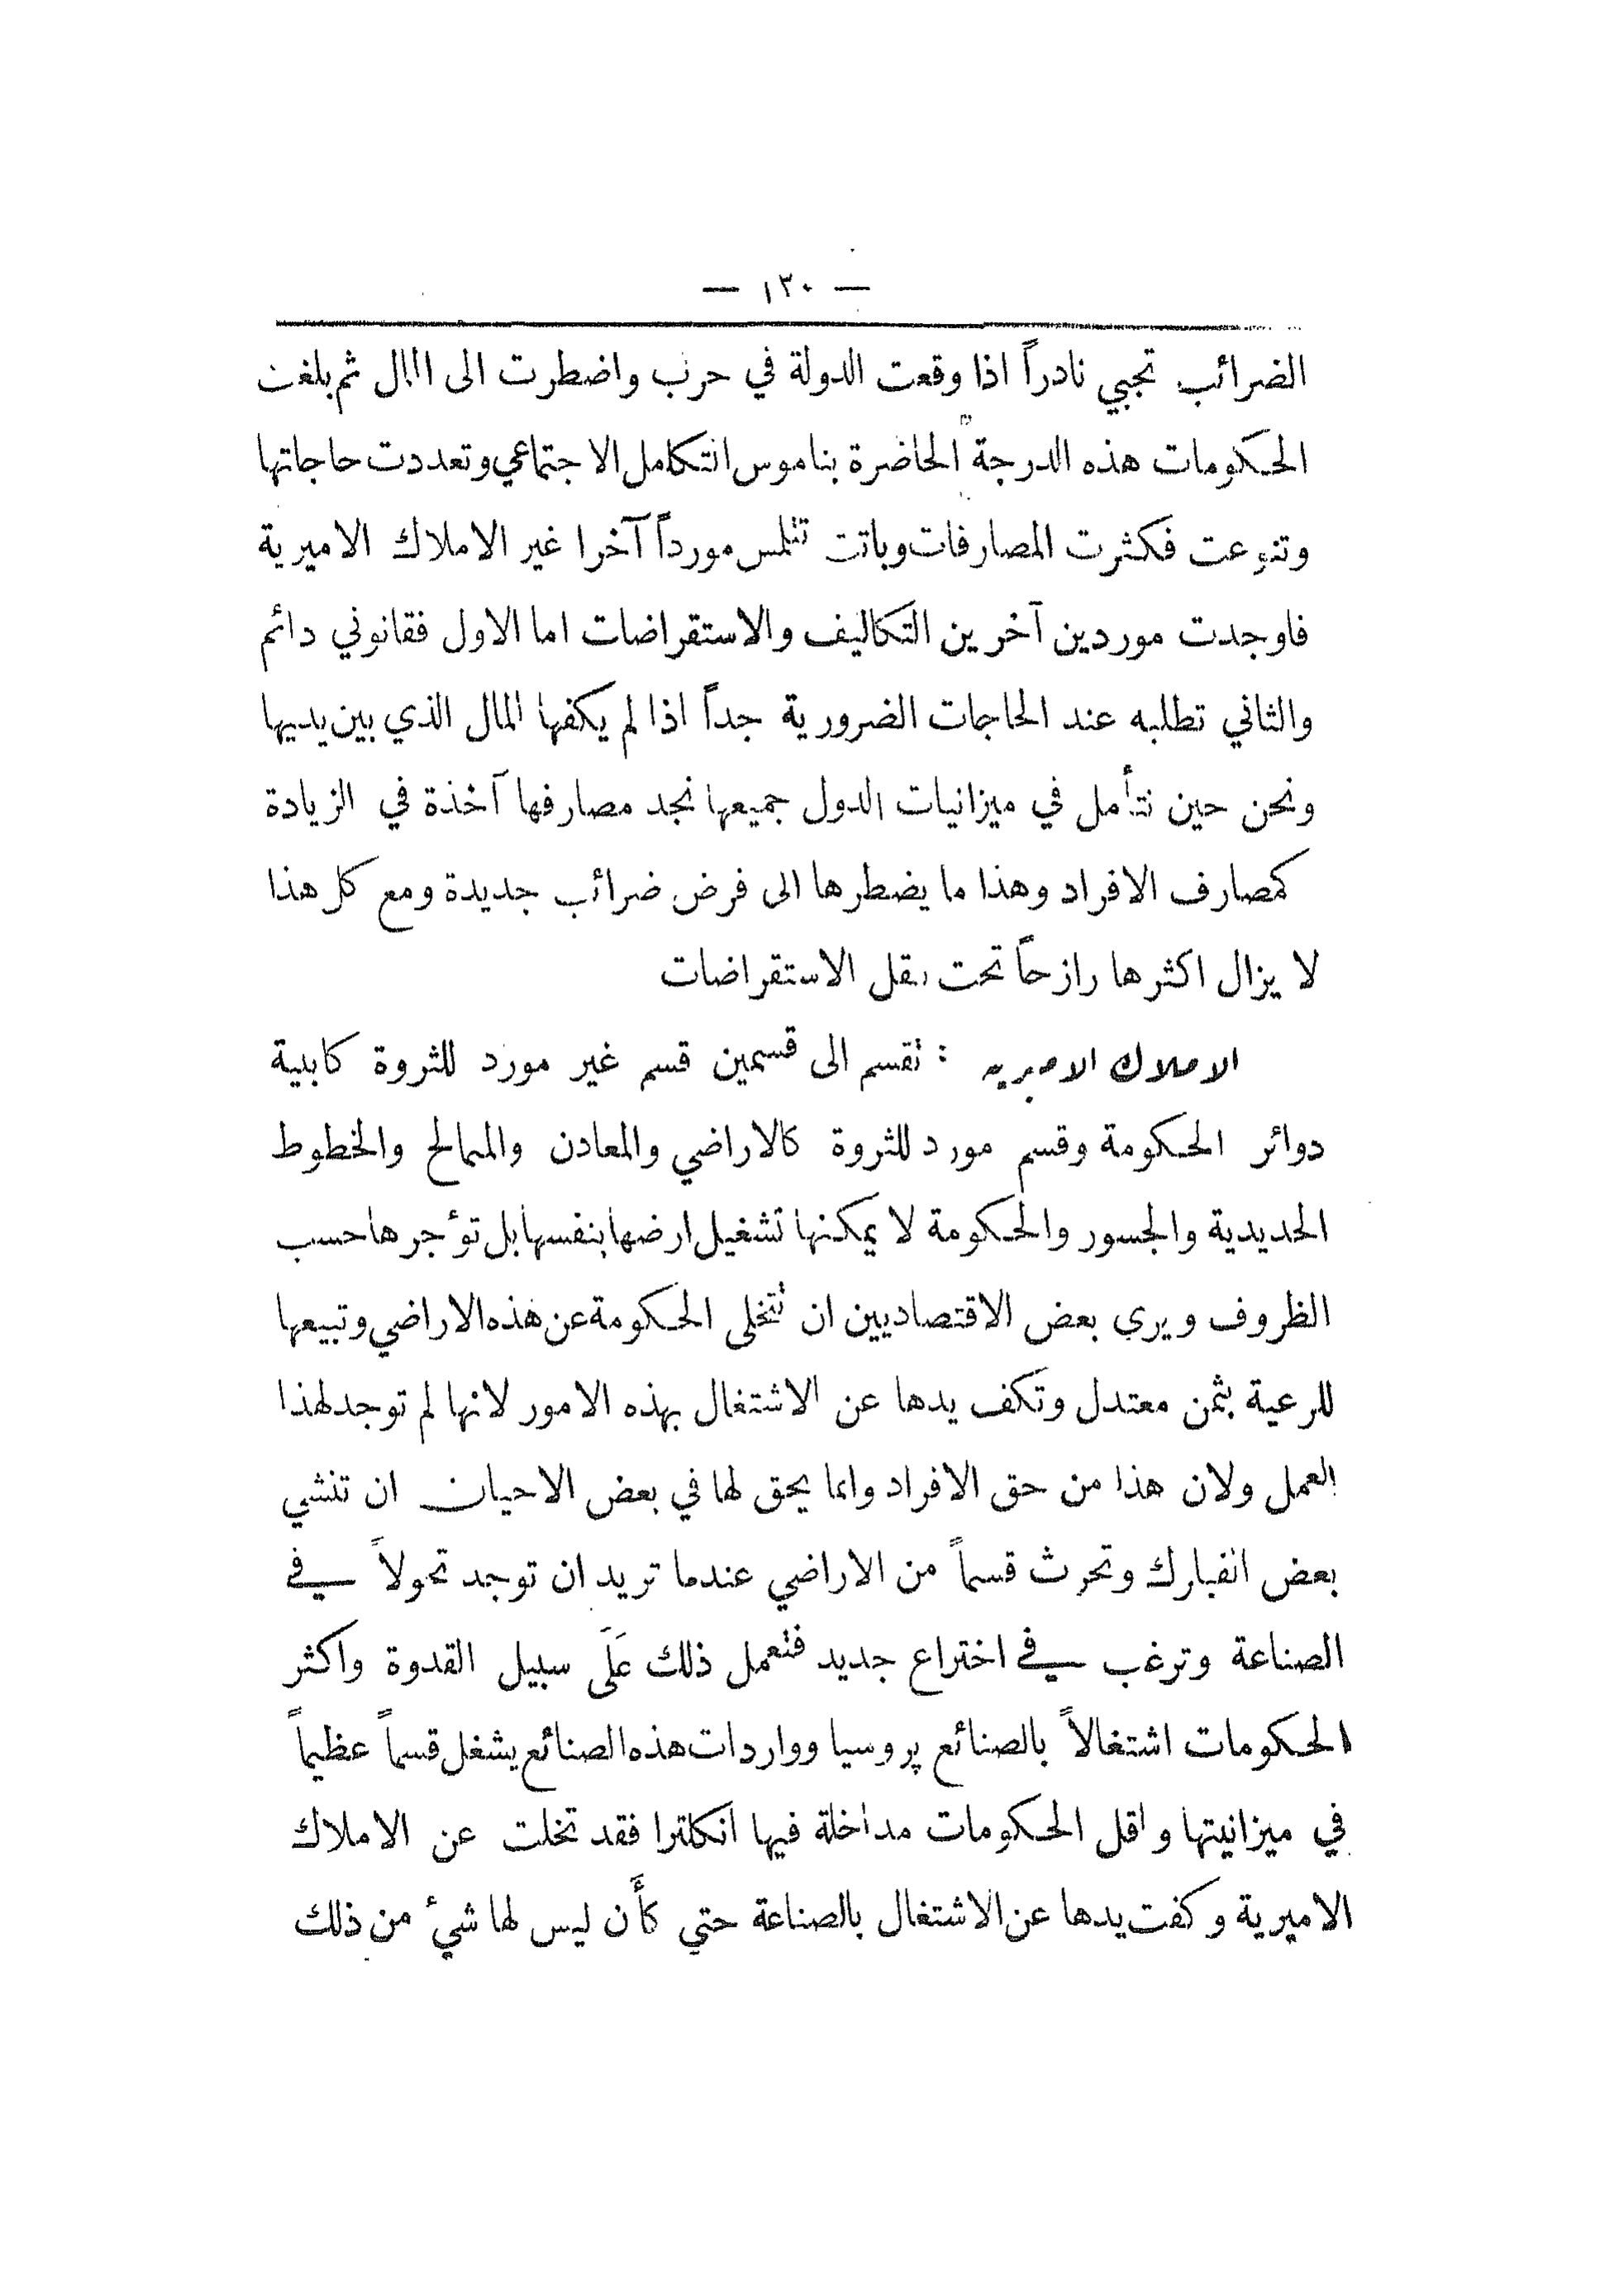 — ١٣٠ —
الضرائب تجبي نادراً اذا وقعت الدولة في حرب واضطرت الى المال ثم بلغت
الحكومات هذه الدرجة الحاضرة بناموس التكامل الاجتماعي وتعددت حاجاتها
وتنوعت فكثرت المصارفات وباتت تتلمس مورداً آخرا غير الاملاك الاميرية
فاوجدت موردين آخرين التكاليف والاستقراضات اما الاول فقانوني دائم
والثاني تطلبه عند الحاجات الضرورية جداً اذا لم يكفها المال الذي بين يديها
ونحن حين نتأمل في ميزانيات الدول جميعها نجد مصارفها آخذة في الزيادة
كمصارف الافراد وهذا ما يضطرها الى فرض ضرائب جديدة ومع كل هذا
لا يزال اكثرها رازحاً تحت ثقل الاستقراضات
الاملاك الاميريه : تقسم الى قسمين قسم غير مورد للثروة كابنية
دوائر الحكومة وقسم مورد للثروة كالاراضي والمعادن والممالح والخطوط
الحديدية والجسور والحكومة لا يمكنها تشغيل ارضها بنفسها بل تؤجرها حسب
الظروف ويري بعض الاقتصاديين ان تتخلى الحكومة عن هذه الاراضي وتبيعها
للرعية بثمن معتدل وتكف يدها عن الاشتغال بهذه الامور لانها لم توجد لهذا
العمل ولان هذا من حق الافراد وانما يحق لها في بعض الاحيان ان تنشي
بعض الفبارك وتحرث قسماً من الاراضي عندما تريد ان توجد تحولاً في
الصناعة وترغب في اختراع جديد فتعمل ذلك عَلَى سبيل القدوة واكثر
الحكومات اشتغالاً بالصنائع پروسيا وواردات هذه الصنائع يشغل قسماً عظيماً
في ميزانيتها واقل الحكومات مداخلة فيها انكلترا فقد تخلت عن الاملاك
الاميرية وكفت يدها عن الاشتغال بالصناعة حتي كأَن ليس لها شيءٌ من ذلك